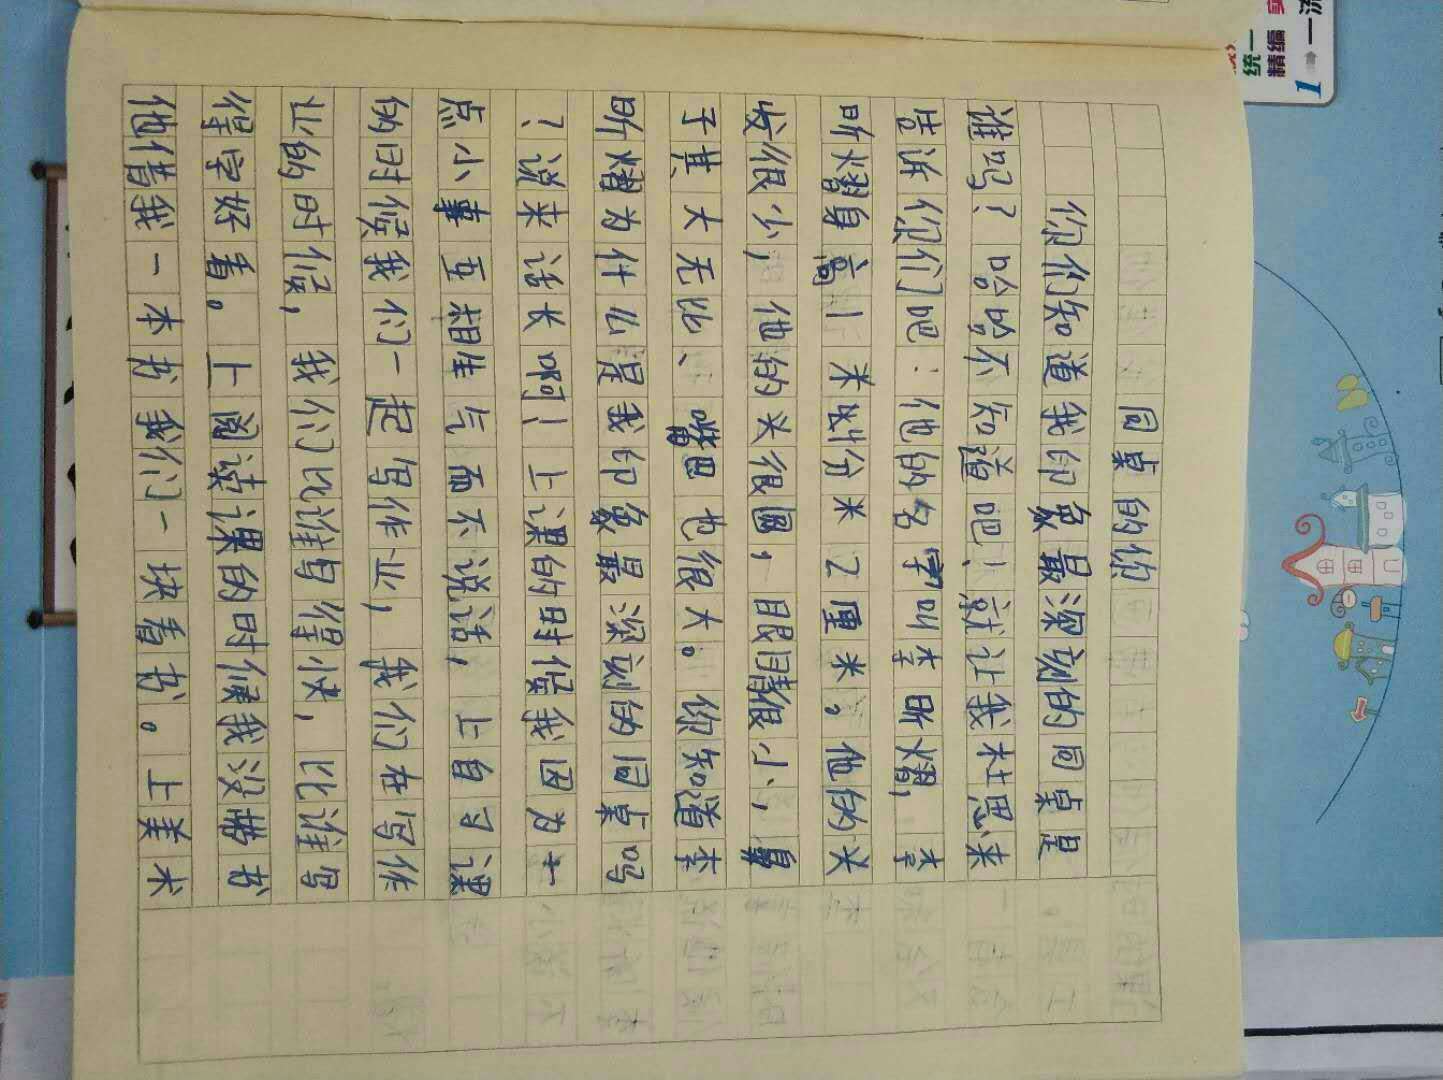 同桌的你
你们知道我印象最深刻的同桌是
谁吗？哈哈不知道吧！就让我杜思来
告诉你们吧：他的名字叫李昕熠，李
昕熠身高1米4分米2厘米。他的头
发很少，他的头很圆，眼睛很小，鼻
子其大无比、嘴巴也很大。你知道李
昕熠为什么是我印象最深刻的同桌吗
？说来话长啊！上课的时候我因为一
点小事互相生气而不说话，上自习课
的时候我们一起写作业，我们在写作
业的时候，我们比谁写得快，比谁写
得字好看。上阅读课的时候我没带书
他借我一本书我们一块看书。上美术
统一
精编
1
一流